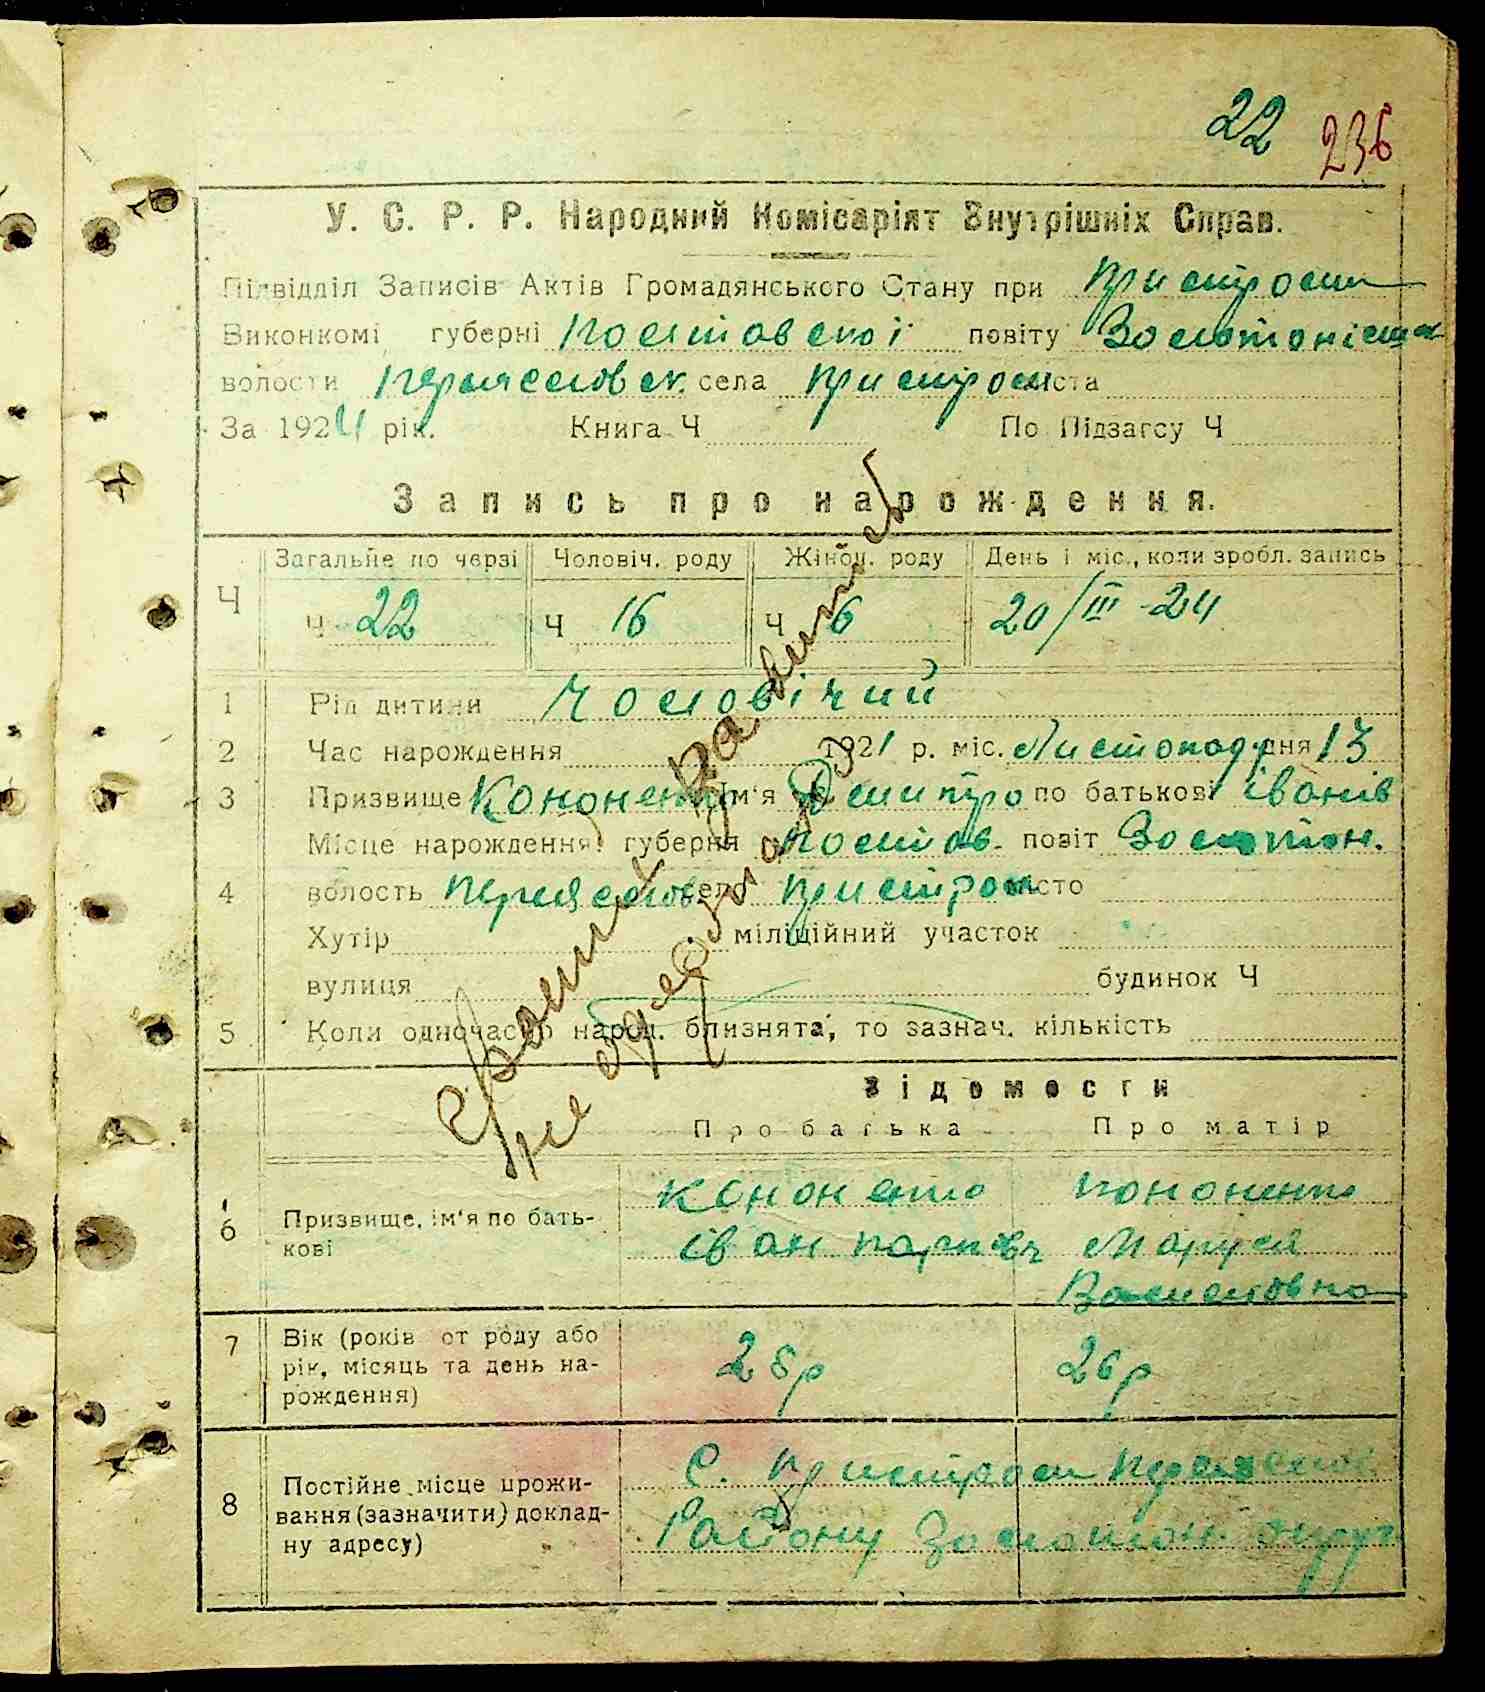 22 236
У. С. Р. Р. Народний Комісаріят Внутрішніх Справ.
Підвідділ Записів Актів Громадянського Стану при Пристром
Виконкомі губерні Полтавської повіту Золотоніськ
волости Переяслов ск. села Пристром міста
За 1924 рік. Книга Ч По Підзагсу Ч
Запись про народження.
Ч Загальне по черзі Чоловіч. роду Жіноч. роду День і міс., коли зробл. запись
Ч 22 Ч 16 Ч 6 20/III-24
1 Рід дитини Чоловічий
2 Час народження 1921 р. міс. Листопад дня 13
3 Призвище Кононенко Ім'я Дмитро по батькові Іванів
Місце народження: губерня Полтав. повіт Золотон.
4 волость Переяслов село Пристром місто
Хутір міліційний участок
вулиця будинок Ч
5 Коли одночасно народ. близнята, то зазнач. кількість
Відомости
Про батька Про матір
6 Призвище, ім'я по бать-
кові
Кононенко Кононенко
Іван Маруся
Василовна
7 Вік (років от роду або
рік, місяць та день на-
рождення)
28р 26р
8 Постійне місце прожи-
вання (зазначити) доклад-
ну адресу)
С. Пристром Переяслов
Району Золотон. округ